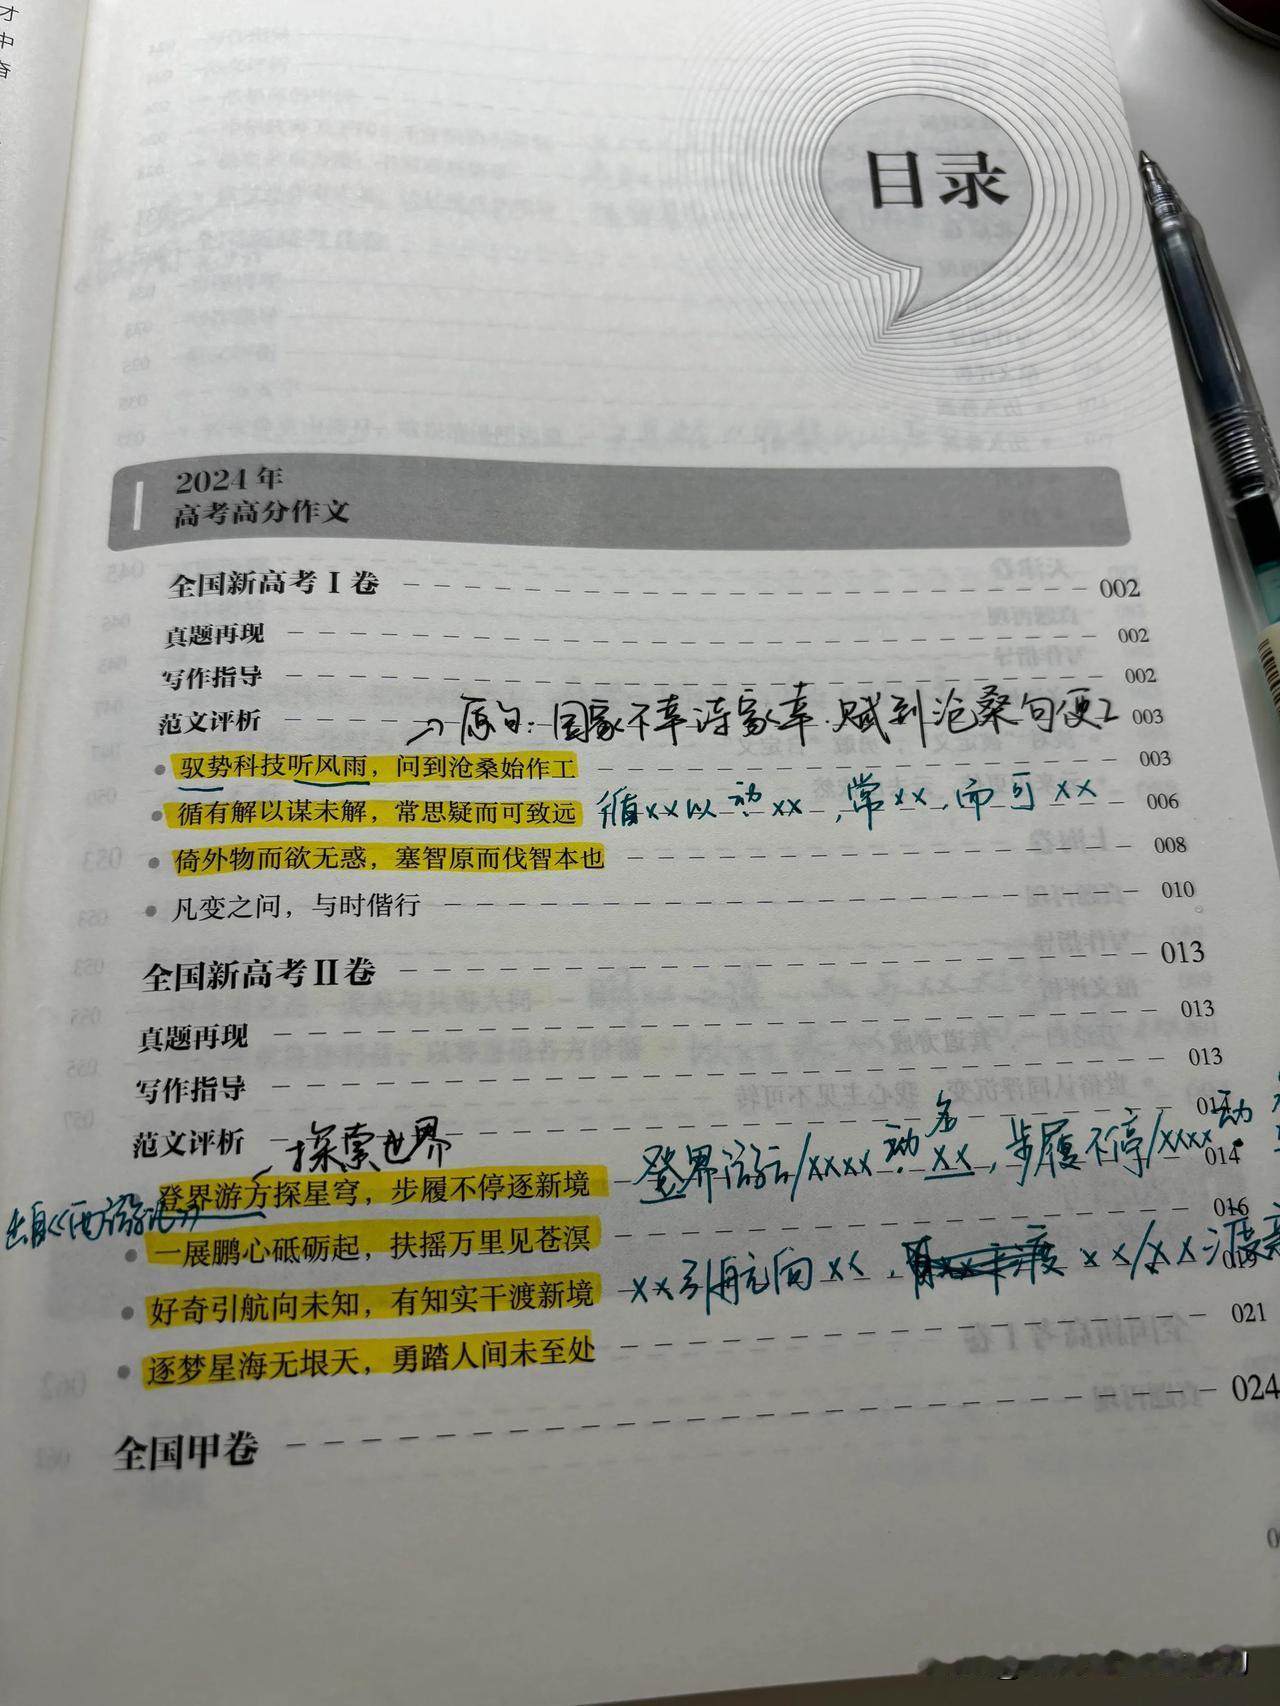 才
中
奋
目录
2024 年
高考高分作文
全国新高考 I 卷 002
真题再现 002
写作指导 002
范文评析 003
→原句：国家不幸诗家幸·赋到沧桑句便工
驭势科技听风雨，问到沧桑始作工 003
循有解以谋未解，常思疑而可致远 006
循xx以动xx，常xx，而可xx
倚外物而欲无惑，塞智原而伐智本也 008
凡变之问，与时偕行 010
全国新高考 II 卷 013
真题再现 013
写作指导 013
范文评析 014
探索世界
登界游方探星穹，步履不停逐新境 014
登界游云/xxxx动名xx，步履不停/xxxx动
出自《西游记》
一展鹏心砥砺起，扶摇万里见苍溟 016
好奇引航向未知，有知实干渡新境 019
xx引航向xx，xx/xx渡
逐梦星海无垠天，勇踏人间未至处 021
全国甲卷 024